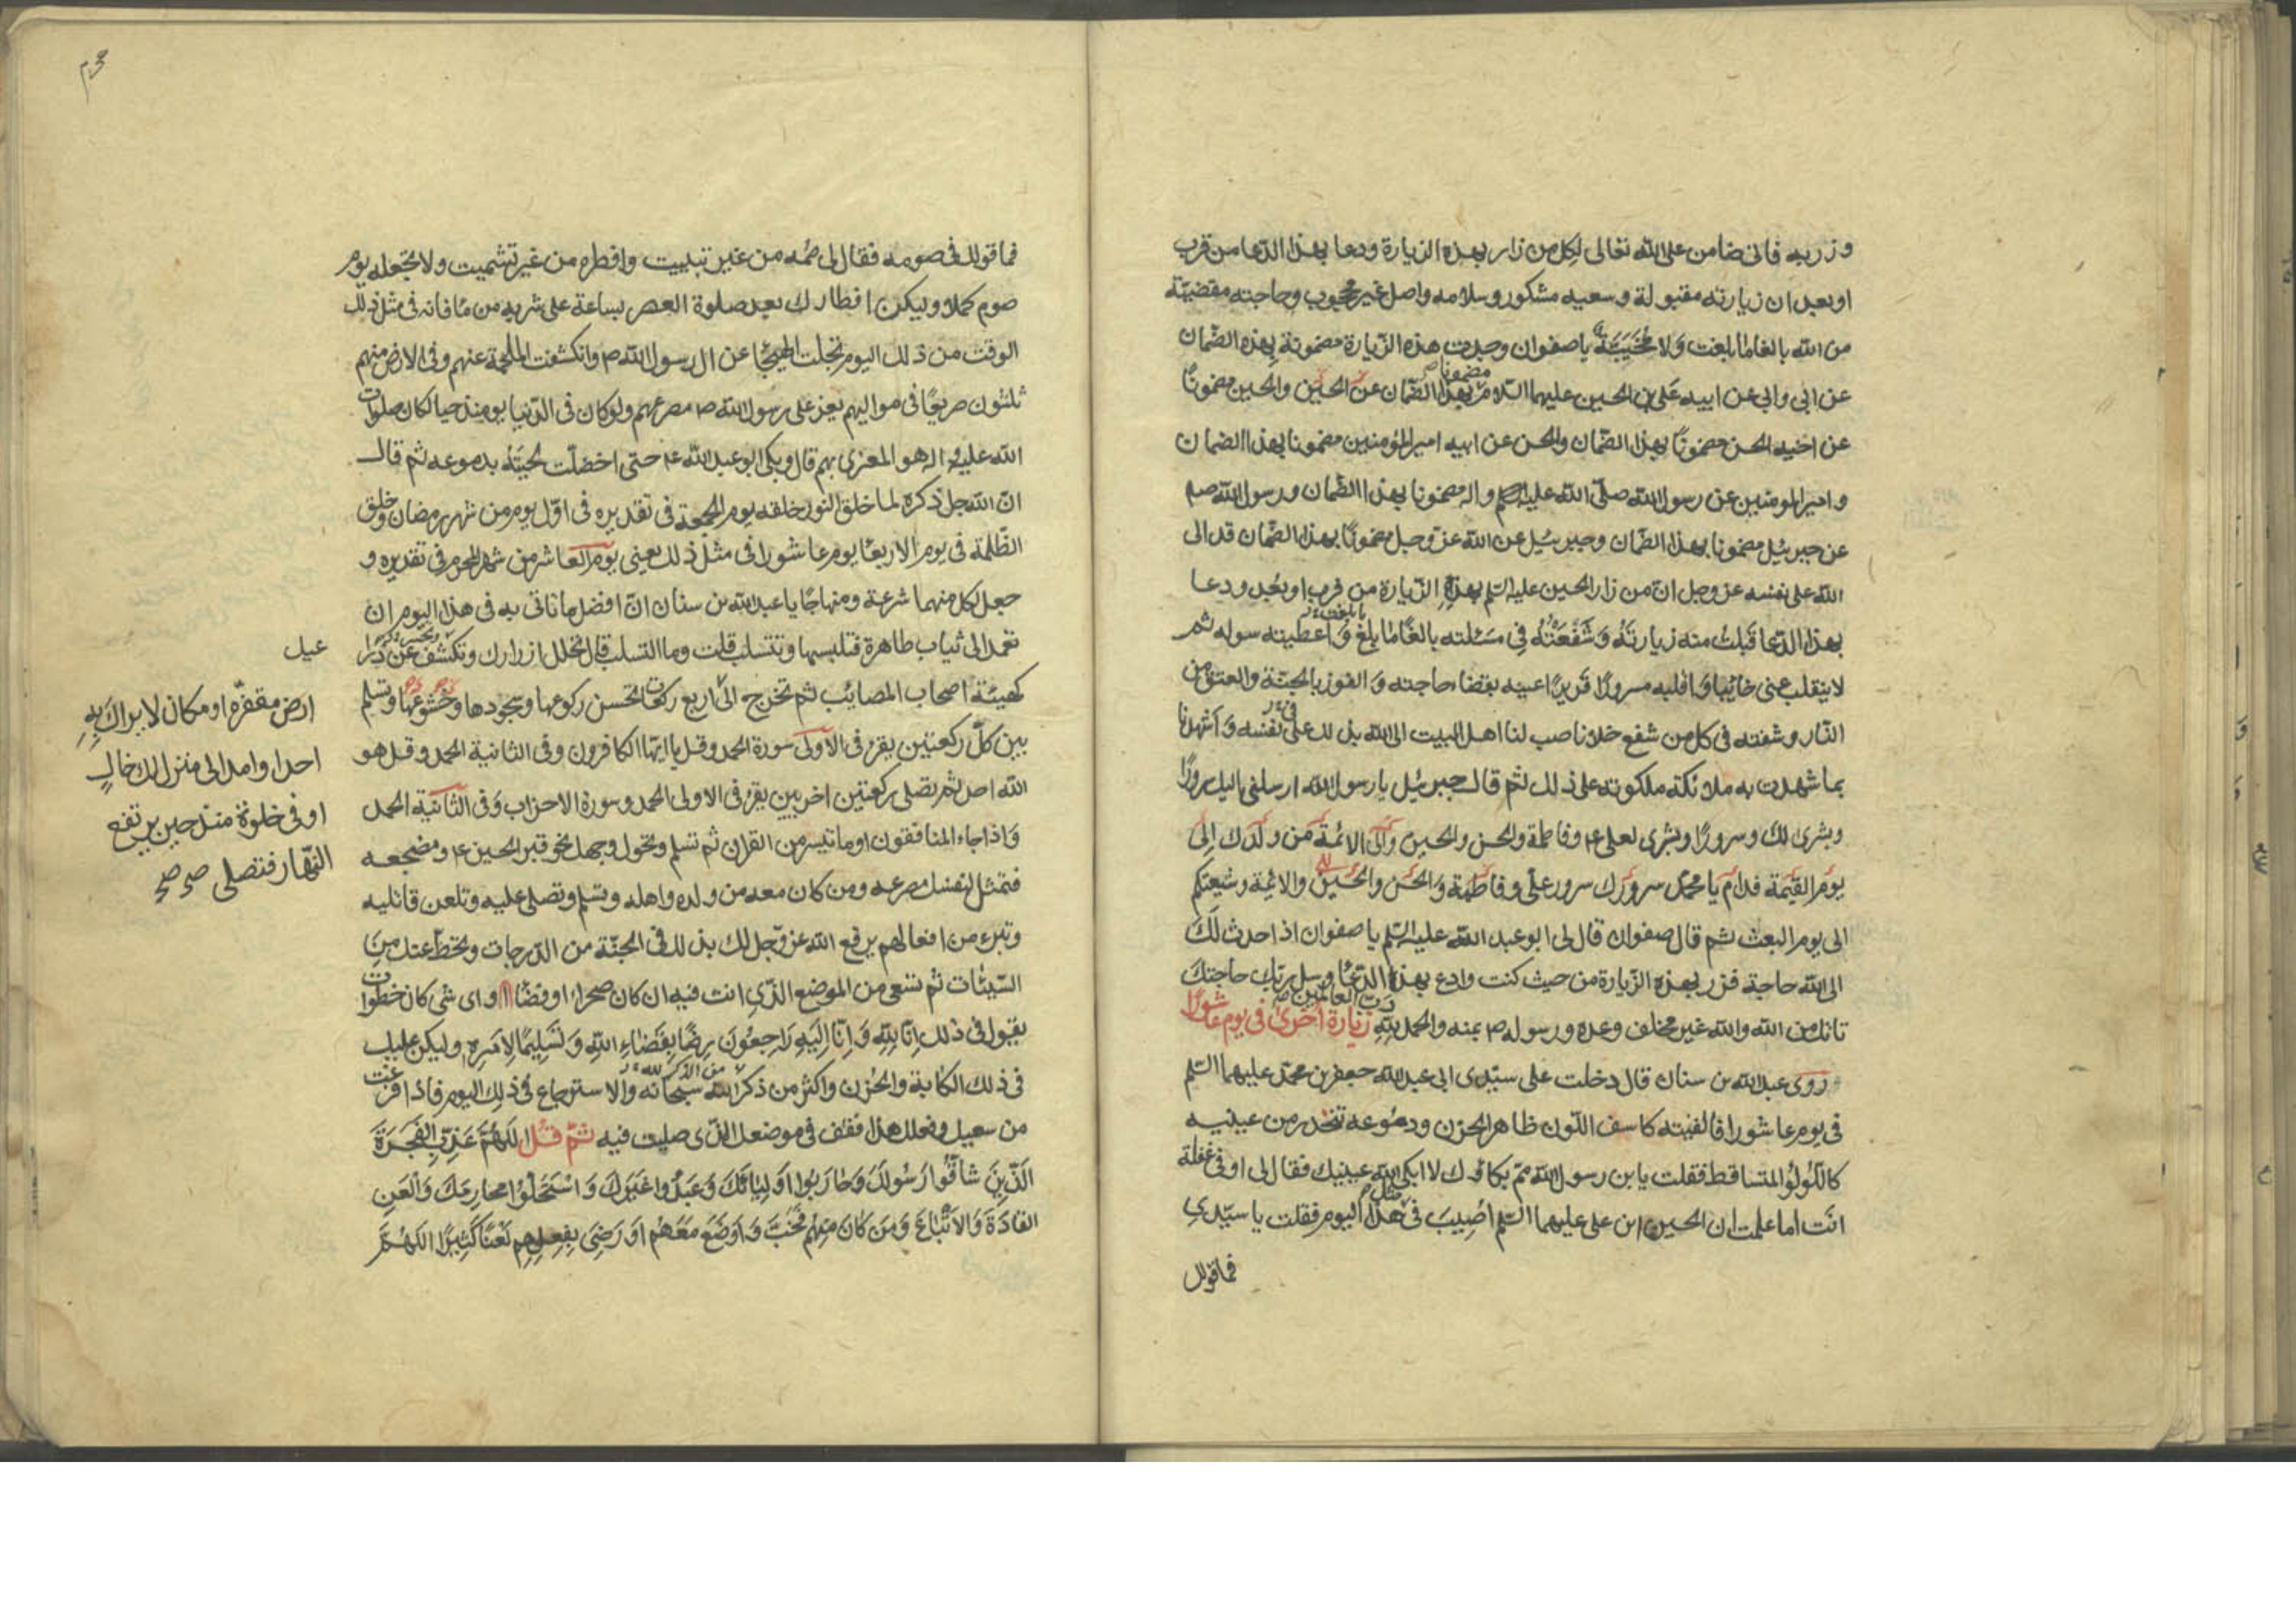 وزر به فانى ضامن على الله تعالى لكل من زار بهذه الزيارة ودعا بهذا الدعا من قرب
او بعد ان زيارته مقبولة وسعيه مشكور وسلامه واصل غير محجوب وحاجته مقضيّة
من الله بالغا ما بلغت وَلا يُخَيِّبَهُ يا صفوان وجدت هذه الزّيارة مضمونة بهذه الضّمان
عن ابى وابى عن ابيه عَلى بن الحسين عليهما السّلام مضمونا بهذا الضّمان عن الحسين والحسين مضمونًا
عن اخيه الحسن مضمونًا بهذا الضّمان والحسن عن ابيه امير المؤمنين مضمونا بهذا الضمان
و امير المومنين عن رسول الله صلّى الله عليه واله مضمونا بهذا الضّمان ورسول الله صم
عن جبرئيل مضمونا بهذا الضّمان وجبرئيل عن الله عزّ وجل مضمونًا بهذا الضّمان قد الى
الله على نفسه عز وجل انّ من زار الحسين عليه السّلم بهذهِ الزّيارة من قرب او بُعد ودعا
بهذا الدّعا قَبلتُ منه زيارتَهُ وَشَفّعْتُهُ فِى مَسْئلته بالغًا ما بلغ وَاعطيته سوله ثم
لا ينقلب عنى خائبا وَاقلبه مسرورًا قَريرًا عينه بقضاء حاجته وَ الفوز بالجنّة والعتق من
النّار وشفعته فى كل من شفع خلا ناصب لنا اهل البيت الى الله بذلك على نفسه وَ اشهدنا
بما شهدت به ملائكة ملكوته على ذلك ثم قال جبرئيل يا رسول الله ارسلنى اليك سرورًا
وبشرى لكَ وسرورًا وبشرى لعلى ع وفاطمة والحسن والحسين وَالى الائمّة مَن ولْدك اِلى
يوم القيمة فدام يا محمّد سرورك سرور علىّ وفاطمة وَ الحسن والحسين والائمّة وشيعتكم
الى يوم البعث ثم قال صفوان قال لى ابو عبد الله عليه السّلم يا صفوان اذا حدث لَكَ
الى الله حاجة فزر بهذه الزّيارة من حيث كنت وادع بهذا الدّعا وسل ربّك حاجتكَ
تاتك من الله والله غير مخلف وعده ورسوله ص بمنه والحمد للهِ رَبّ العالمين زيارة اخرى فى يوم عاشورا
روى عبد الله بن سنان قال دخلت على سيّدى ابى عبد الله جعفر بن محمّد عليهما السّلم
فى يوم عاشورا فالفيته كاسف اللّون ظاهر الحزن ودموعه تنحدر من عينيه
كاللّولؤ المتساقط فقلت يا بن رسول الله ممّ بكاؤك لا ابكى الله عينيك فقال لى اوفى غفلة
انت اما علمت ان الحسين ابن على عليهما السّلم اُصيبَ فى مثل هذا اليوم فقلت يا سيّدى
فما قولك
فما قولك فى صومه فقال لى صُمه من غير تبييت وافطره من غير تشميت ولا تجعله يوم
صوم كملا وليكن افطارك بعد صلوة العصر بساعة على شربه من ماء فانه فى مثل ذلك
الوقت من ذلك اليوم تجلت الهيجاء عن ال رسول الله ص وانكشفت الملحمة عنهم وفى الارض منهم
ثلثون صريعًا فى مواليهم يعز على رسول الله ص مصرعهم ولو كان فى الدّنيا يومئذ حيا لكان صلوات
الله عليه واله هو المعزى بهم قال وبكى ابو عبد الله ع حتى اخضلّت لحيتُهُ بدموعه ثم قال
انّ الله جل ذكره لما خلق النور خلقه يوم الجمعة فى تقديره فى اوّل يوم من شهر رمضان وخلق
الظّلمة فى يوم الاربعا يوم عاشورا فى مثل ذلك يعنى يوم العاشر من شهر المحرم فى تقديره و
جعل لكل منهما شرعة ومنهاجًا يا عبد الله بن سنان انّ افضل ما تاتى به فى هذا اليوم ان
تعمد الى ثياب طاهرة فتلبسها وتتسلب قلت وما التسلب قال تحلل ازرارك وتكشف عن ذراعيك
كهيئة اصحاب المصائب ثم تخرج الى اربع ركعات تحسن ركوعها وسجودها وخشوعها وتسلم
بين كلّ ركعتين يقرء فى الاولى سورة الحمد وقل يا ايّها الكافرون وفى الثانية الحمد وقل هو
الله احد ثم تصلى ركعتين اخريين يقرء فى الاولى الحمد وسورة الاحزاب وَفى الثانية الحمد
وَاذا جاءَ المنافقون او ما تيسّر من القران ثم تسلم وتحول وجهك نحو قبر الحسين ع ومضجعه
فتمثل لنفسك مصرعه ومن كان معه من ولده واهله وتسلم وتصلى عليه وتلعن قاتليه
وتبرء من افعالهم يرفع الله عز وجل لك بذلك فى الجنّة من الدّرجات ويحط عنك منَ
السّيئات ثم تسعى من الموضع الّذى انت فيه ان كان صحراء او فضاء او اى شى كان خطوات
يقول فى ذلك اِنّا لِلّهِ وَ اِنّا اِلَيْهِ رَاجِعُونَ رِضًا بِقَضاءِ اللهِ وَ تَسْليمًا لِاَمْرِهِ وليكن عليك
فى ذلك الكابة والحُزن واكثر من ذكر الله سبحانه والاسترجاع فى ذلك اليوم فاذا فرغت
من سعيك وفعلك هذا فقف فى موضعك الّذى صليت فيه ثمّ قُل اللّهُمَّ عَذّبِ الفَجَرَةَ
الّذينَ شاقّوا رَسُولَكَ وَحارَبُوا اَوْلِيائَكَ وَعَبَدُوا غَيْرَكَ وَ اسْتَحَلّوا محارِمَكَ وَالْعَنِ
القادَةَ وَالاَتْباعَ وَ مَن كانَ مِنْهُم فَخَبَّ وَ اَوضَعَ مَعَهُم اَو رَضِىَ بِفِعلِهِم لَعْنًا كَثيرًا اللّهُمَّ
ارض مقفرّة او مكان لا يراكَ بهِ
احد او اعمد الى منزل لك خالٍ
او فى خلوة منذ حين يرتفع
النّهار فتصلى صح صح